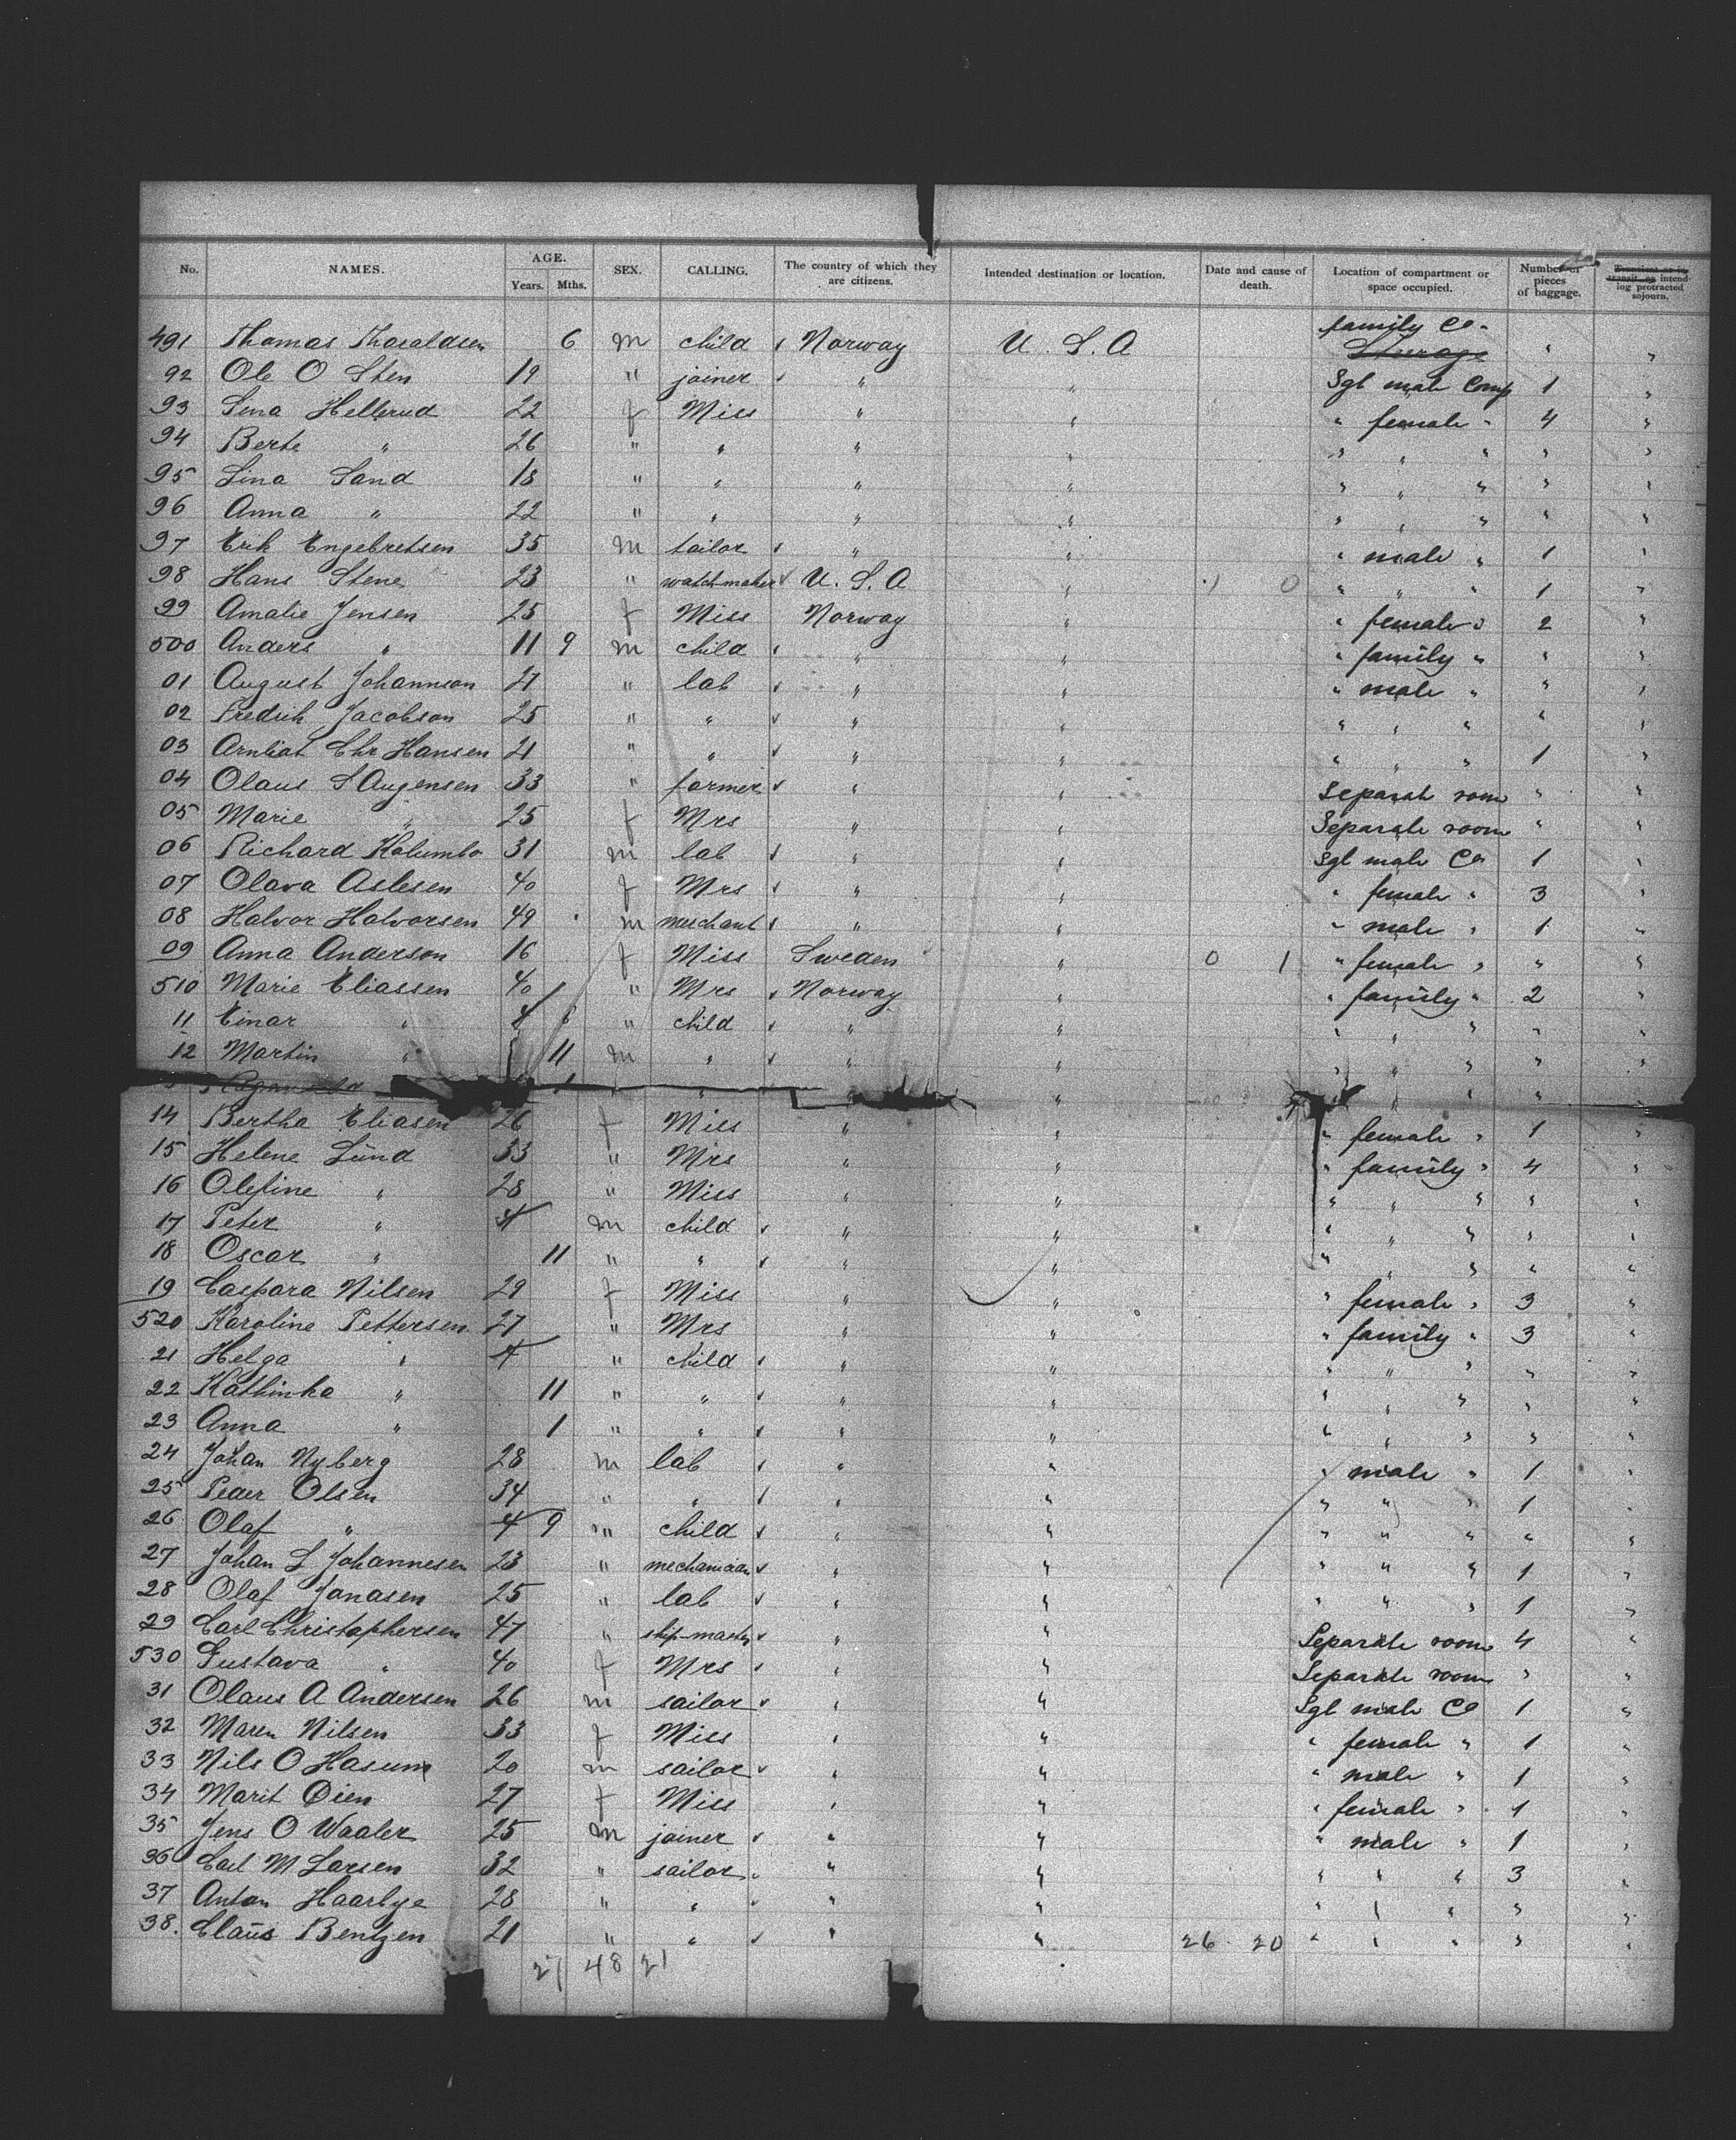 No. NAMES. AGE. Years. Mths. SEX. CALLING. The country of which they are citizens. Intended destination or location. Date and cause of death. Location of compartment or space occupied. Number of pieces of baggage. Transient or in transit, or intending protracted sojourn.
491 Thomas Thoraldsen 6 m child Norway U. S. A family Co. Steerage "
92 Ole O Sten 19 " joiner " " Sgl male Comp 1 "
93 Lena Hellerud 22 f Miss " " " female " 4 "
94 Berte " 26 " " " " " " " " "
95 Lina Sand 18 " " " " " " " " "
96 Anna " 22 " " " " " " " " "
97 Erik Engebretsen 35 m tailor " " " male " 1 "
98 Hans Stene 23 " watch-maker U. S. A " 1 0 " " " 1 "
99 Amalie Jensen 25 f Miss Norway " " female " 2 "
500 Anders " 11 9 m child " " " family " " "
01 August Johannson 27 " lab " " " male " " "
02 Fredrik Jacobson 25 " " " " " " " " "
03 Chr Hansen 21 " " " " " " " 1 "
04 Olaus S Augensen 33 " farmer " " Separate room " "
05 Marie " 25 f Mrs " " Separate room " "
06 Richard Kolumbo 31 m lab " " Sgl male Co 1 "
07 Olava Aslesen 40 f Mrs " " " female " 3 "
08 Halvor Halvorsen 49 m merchant " " " male " 1 "
09 Anna Anderson 16 f Miss Sweden " 0 1 " female " " "
510 Marie Eliassen 40 " Mrs Norway " " family " 2 "
11 Einar " 4 " child " " " " " " "
12 Martin " 11 m " " " " " " " "
14 Bertha Eliasen 26 f Miss " " " female " 1 "
15 Helene Lund 33 " Mrs " " " family " 4 "
16 Olefine " 28 " Miss " " " " " " "
17 Peter " 4 m child " " " " " " "
18 Oscar " 11 " " " " " " " " "
19 Caspara Nilsen 29 f Miss " " " female " 3 "
520 Karoline Pettersen 27 " Mrs " " " family " 3 "
21 Helga " 4 " child " " " " " " "
22 Kathinka " 11 " " " " " " " " "
23 Anna " 1 " " " " " " " " "
24 Johan Nyberg 28 m lab " " " male " 1 "
25 Peder Olsen 34 " " " " " " " 1 "
26 Olaf " 4 9 " child " " " " " " "
27 Johan L Johannesen 23 " mechanican " " " " " 1 "
28 Olaf Jonasen 25 " lab " " " " " 1 "
29 Carl Christophersen 47 " ship-master " " Separate room 4 "
530 Gustava " 40 f Mrs " " Separate room " "
31 Olaus A Andersen 26 m sailor " " Sgl male Co 1 "
32 Maren Nilsen 33 f Miss " " " female " 1 "
33 Nils O Hasum 20 m sailor " " " male " 1 "
34 Marit Öien 27 f Miss " " " female " 1 "
35 Jens O Waaler 25 m joiner " " " male " 1 "
36 Carl M Larsen 32 " sailor " " " " " 3 "
37 Anton Haarbye 28 " " " " " " " " "
38. Claus Bentzen 21 " " " " 26 20 " " " " "
27 48 21